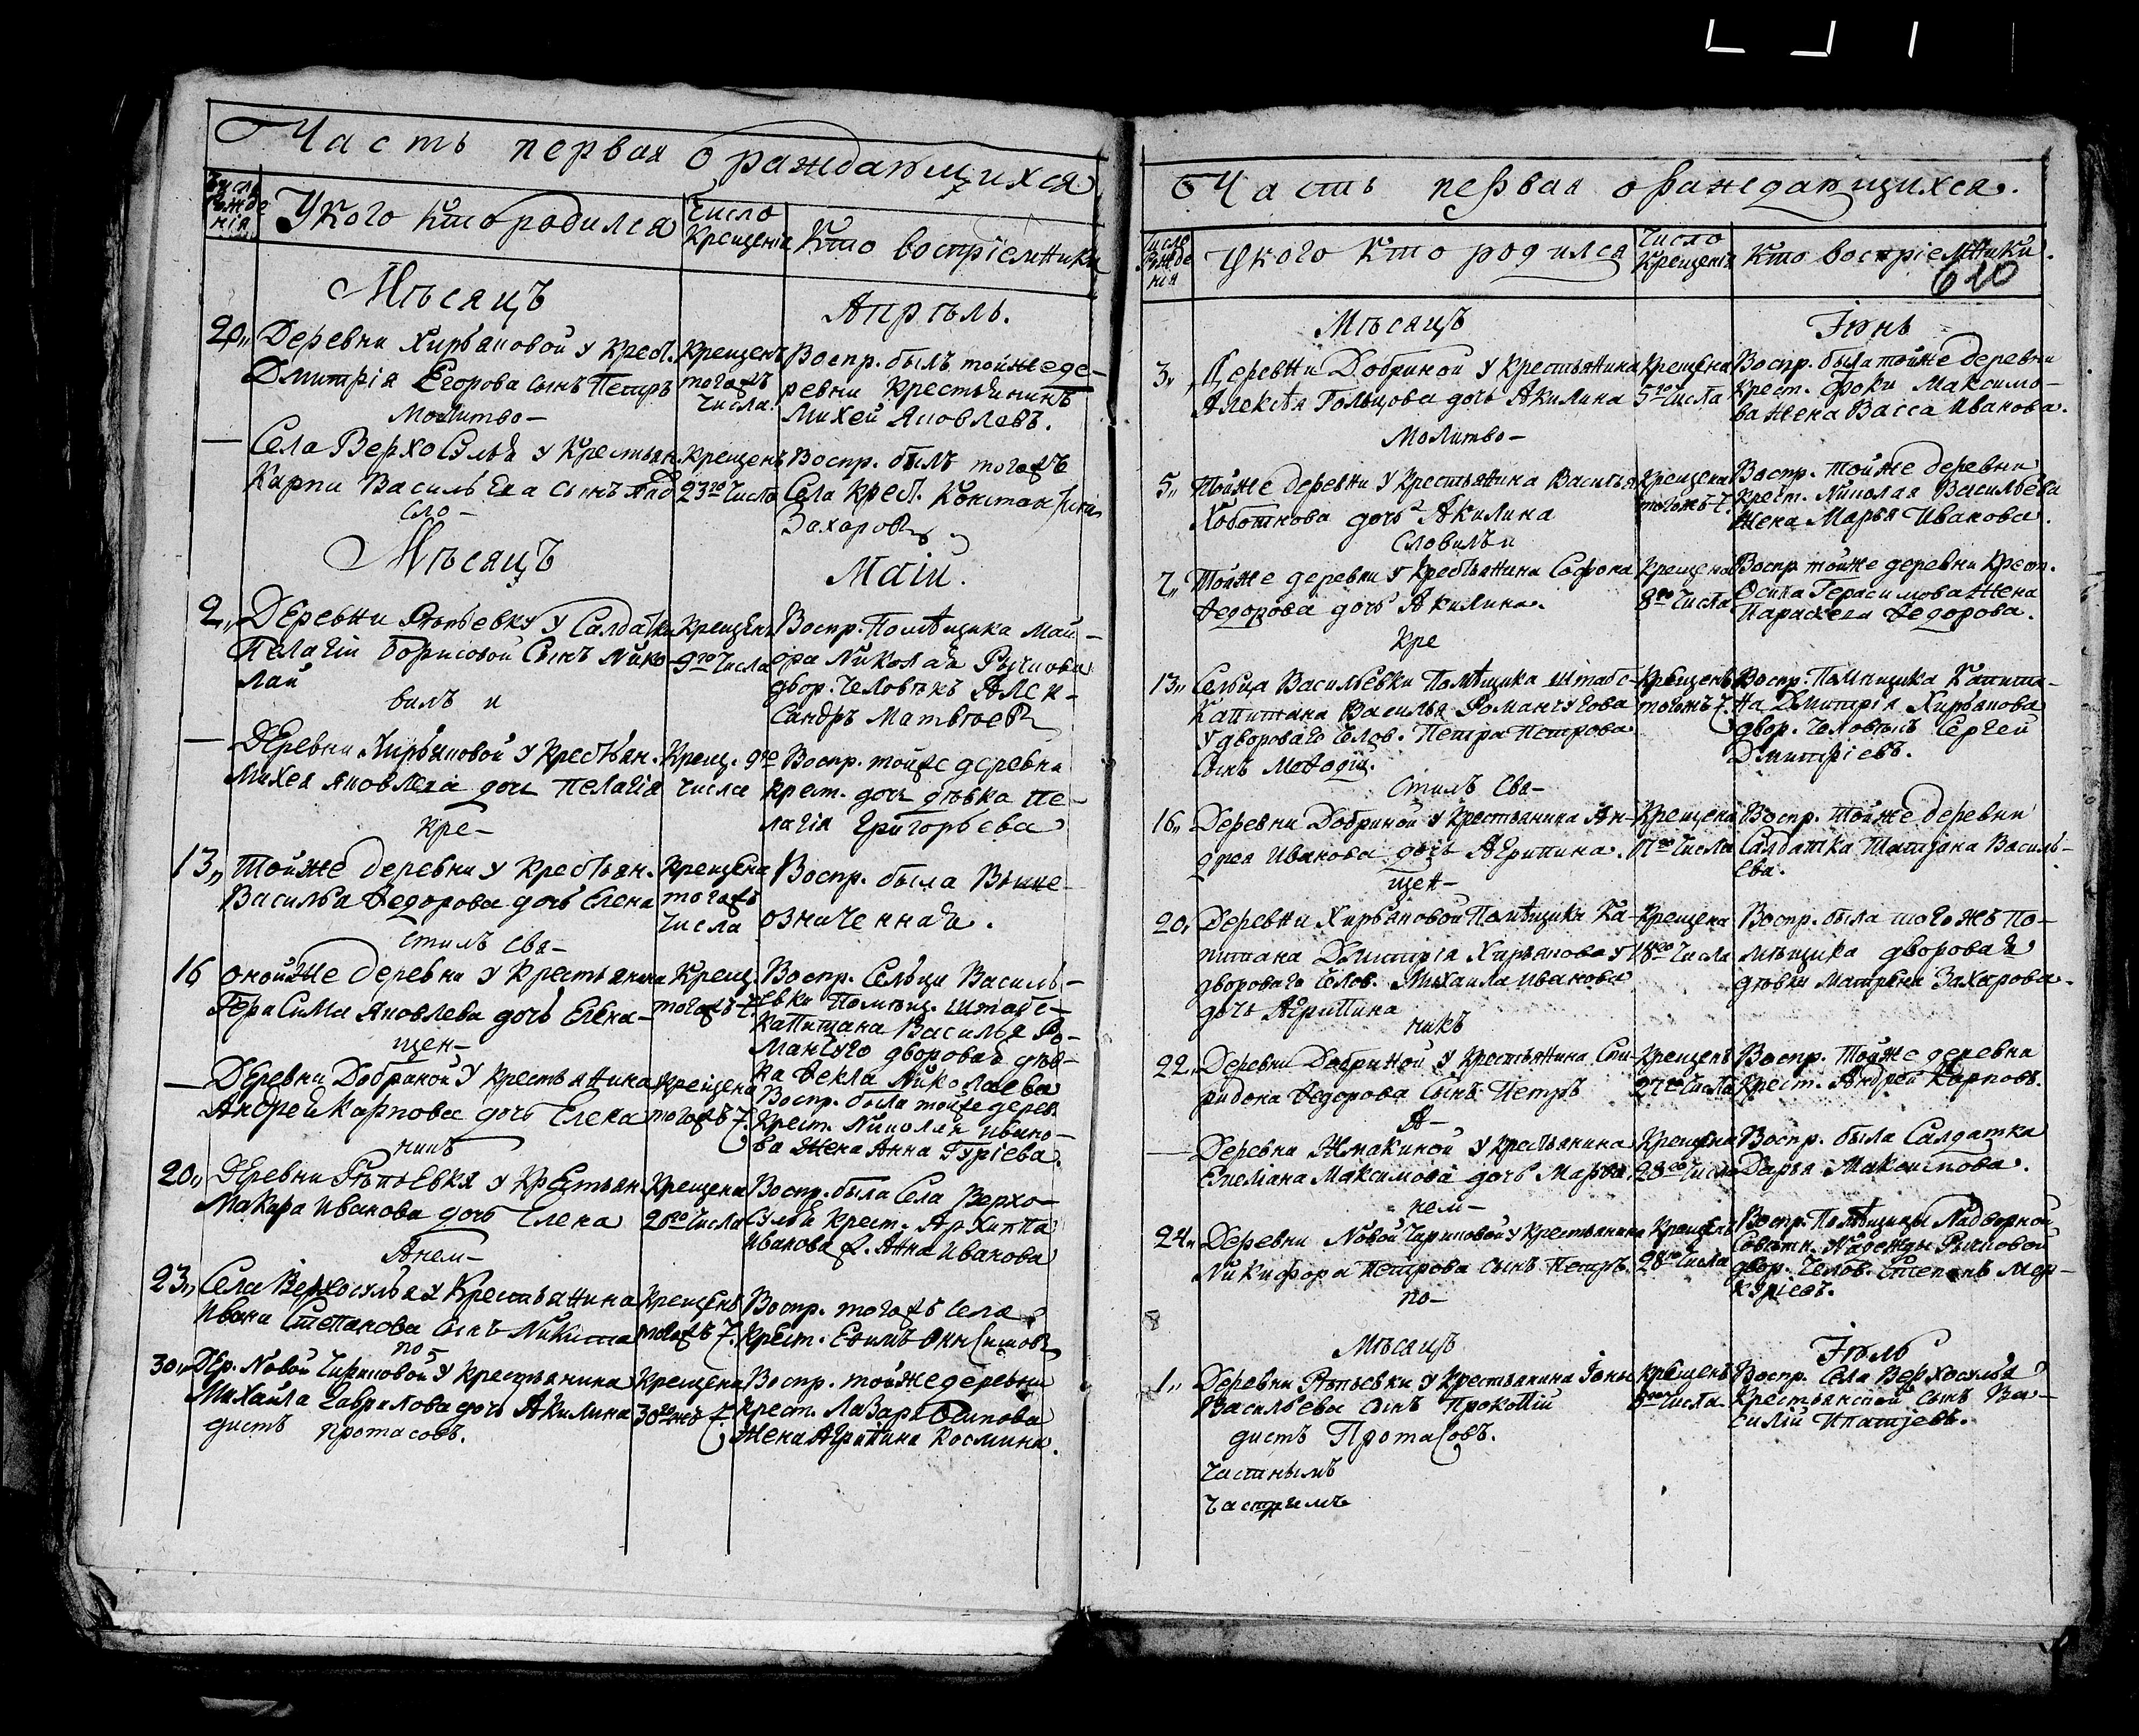 Часть первая о раждающихся
Число рожде нія
У кого кто родился
Число Крещенія
Кто воспріемники
Мѣсяцъ
Апрѣль.
20„ Деревни Хирьяковой у Крест.
Дмитрія Егорова сынъ Петръ
Крещенъ
тогожъ
числа.
Воспр. былъ тойже де-
ревни Крестьянинъ
Михей Яковлевъ.
Молитво-
— Села Верхосулья у Крестьян.
Карпа Васильева сынъ Пав
Крещенъ
23го числа
Воспр. былъ тогожъ
Села Крест. Констан
Захаровъ
сло-
Мѣсяцъ
Маій.
2„ Деревни Репьевки у Салдатки
Пелагіи Борисовой Сынъ Нико-
лай
Крещенъ
9го числа
Воспр. Помѣщика Маи-
ора Николая Рычкова
двор. человѣкъ Алек-
сандръ Матвѣевъ
вилъ и
— Деревни Хирьяковой у Крестьян.
Михея Яковлева дочь Пелагія
Крещ. 9го
числа
Воспр. тойже деревни
крест. дочь дѣвка Пе-
лагія Григорьева
кре-
13„ Тойже деревни у Крестьян.
Василья Федорова дочь Елена
Крещена
тогожъ
числа
Воспр. была Выше-
означенная.
стилъ свя-
16 оной же деревни у Крестьянина
Герасима Яковлева дочь Елена-
Крещ.
тогожъ ч.
Воспр. Сельца Василь-
евки Помѣщ. Штабс-
Капитана Василья Ро-
манчуго дворовая дѣв-
ка Фекла Николаева
щен-
— Деревни Добриной у Крестьянина
Андрея Карпова дочь Елена
Крещена
тогожъ ч.
Воспр. была тойже дерев
Крест. Николая Ивано-
ва жена Анна Гуріева.
никъ
20„ Деревни Репьевки у Крестьян
Макара Иванова дочь Елена
Крещена
20го числа
Воспр. была Села Верхо-
сулья Крест. Архиппа
Иванова ж. Анна Иванова
Анем-
23„ Села Верхосулья у Крестьянина
Ивана Степанова сынъ Никита
Крещенъ
тогожъ ч.
Воспр. тогожъ села
Крест. Ефимъ Онисимовъ
по-
30„ Дер. Новой Чириковой у Крестьянина
Михаила Гаврилова дочь Акилина
Крещена
30го ч.
Воспр. тойже деревни
крест. Лазаря Осипова
жена Агрипина Космина.
дистъ Протасовъ.
Часть первая о раждающихся.
Число Рожде нія
У кого кто родился
Число Крещенія
Кто воспріемники.
610
Мѣсяцъ
Іюнь
3„ Деревни Добриной у Крестьянина
Алексѣя Гольцова дочь Акилина
Крещена
5го числа
Воспр. была тойже деревни
Крест. Фоки Максимо-
ва жена Васса Иванова.
Молитво-
5„ Тойже деревни у Крестьянина Василья
Хоботкова дочь Акилина
Крещена
тогожъ ч.
Воспр. тойже деревни
Крест. Николая Васильева
жена Марья Иванова.
словилъ и
7„ Тойже деревни у Крестьянина Софона
Федорова дочь Акилина.
Крещена
8го числа
Воспр. тойже деревни Крест.
Осипа Герасимова жена
Параскева Федорова.
кре
13„ Сельца Васильевки Помѣщика Штабс-
Капитана Василья Романчугова
у двороваго Челов. Петра Петрова
Сынъ Мефодій.
Крещенъ
тогожъ ч.
Воспр. Помѣщика Капита-
на Дмитрія Хирьякова
двор. человѣкъ Сергей
Дмитріевъ.
стилъ свя-
16„ Деревни Добриной у Крестьянина Ан-
дрея Иванова дочь Агрипина.
Крещена
17го числа
Воспр. тойже деревни
Салдатка Татіяна Василь-
ева.
щен-
20„ Деревни Хирьяковой Помѣщика Ка-
питана Дмитрія Хирьякова у
двороваго Челов. Михаила Иванова
дочь Агрипина
Крещена
числа
Воспр. была тогожъ По-
мѣщика дворовая
дѣвка Матрена Захарова.
никъ
22„ Деревни Добриной у Крестьянина Спи-
ридона Федорова Сынъ Петръ
Крещенъ
27го числа
Воспр. тойже деревни
Крест. Андрей Карповъ.
А-
— Деревни Жмакиной у Крестьянина
Емеліана Максимова дочь Марфа.
Крещена
28го числа
Воспр. была Салдатка
Дарья Максимова.
нем-
24„ Деревни Новой Чириковой у Крестьянина
Никифора Петрова сынъ Петръ.
Крещенъ
28го числа
Воспр. Помѣщицы Надворной
Совѣтн. Надежды Рычковой
двор. Челов. Степанъ Мер-
куріевъ.
по-
Мѣсяцъ
Іюль
1„ Деревни Репьевки у Крестьянина Іоны
Васильева сынъ Прокопій
Крещенъ
8го числа.
Воспр. Села Верхосулья
Крестьянской сынъ Ва-
силій Ипатіевъ.
дистъ Протасовъ.
частнымъ
частнымъ